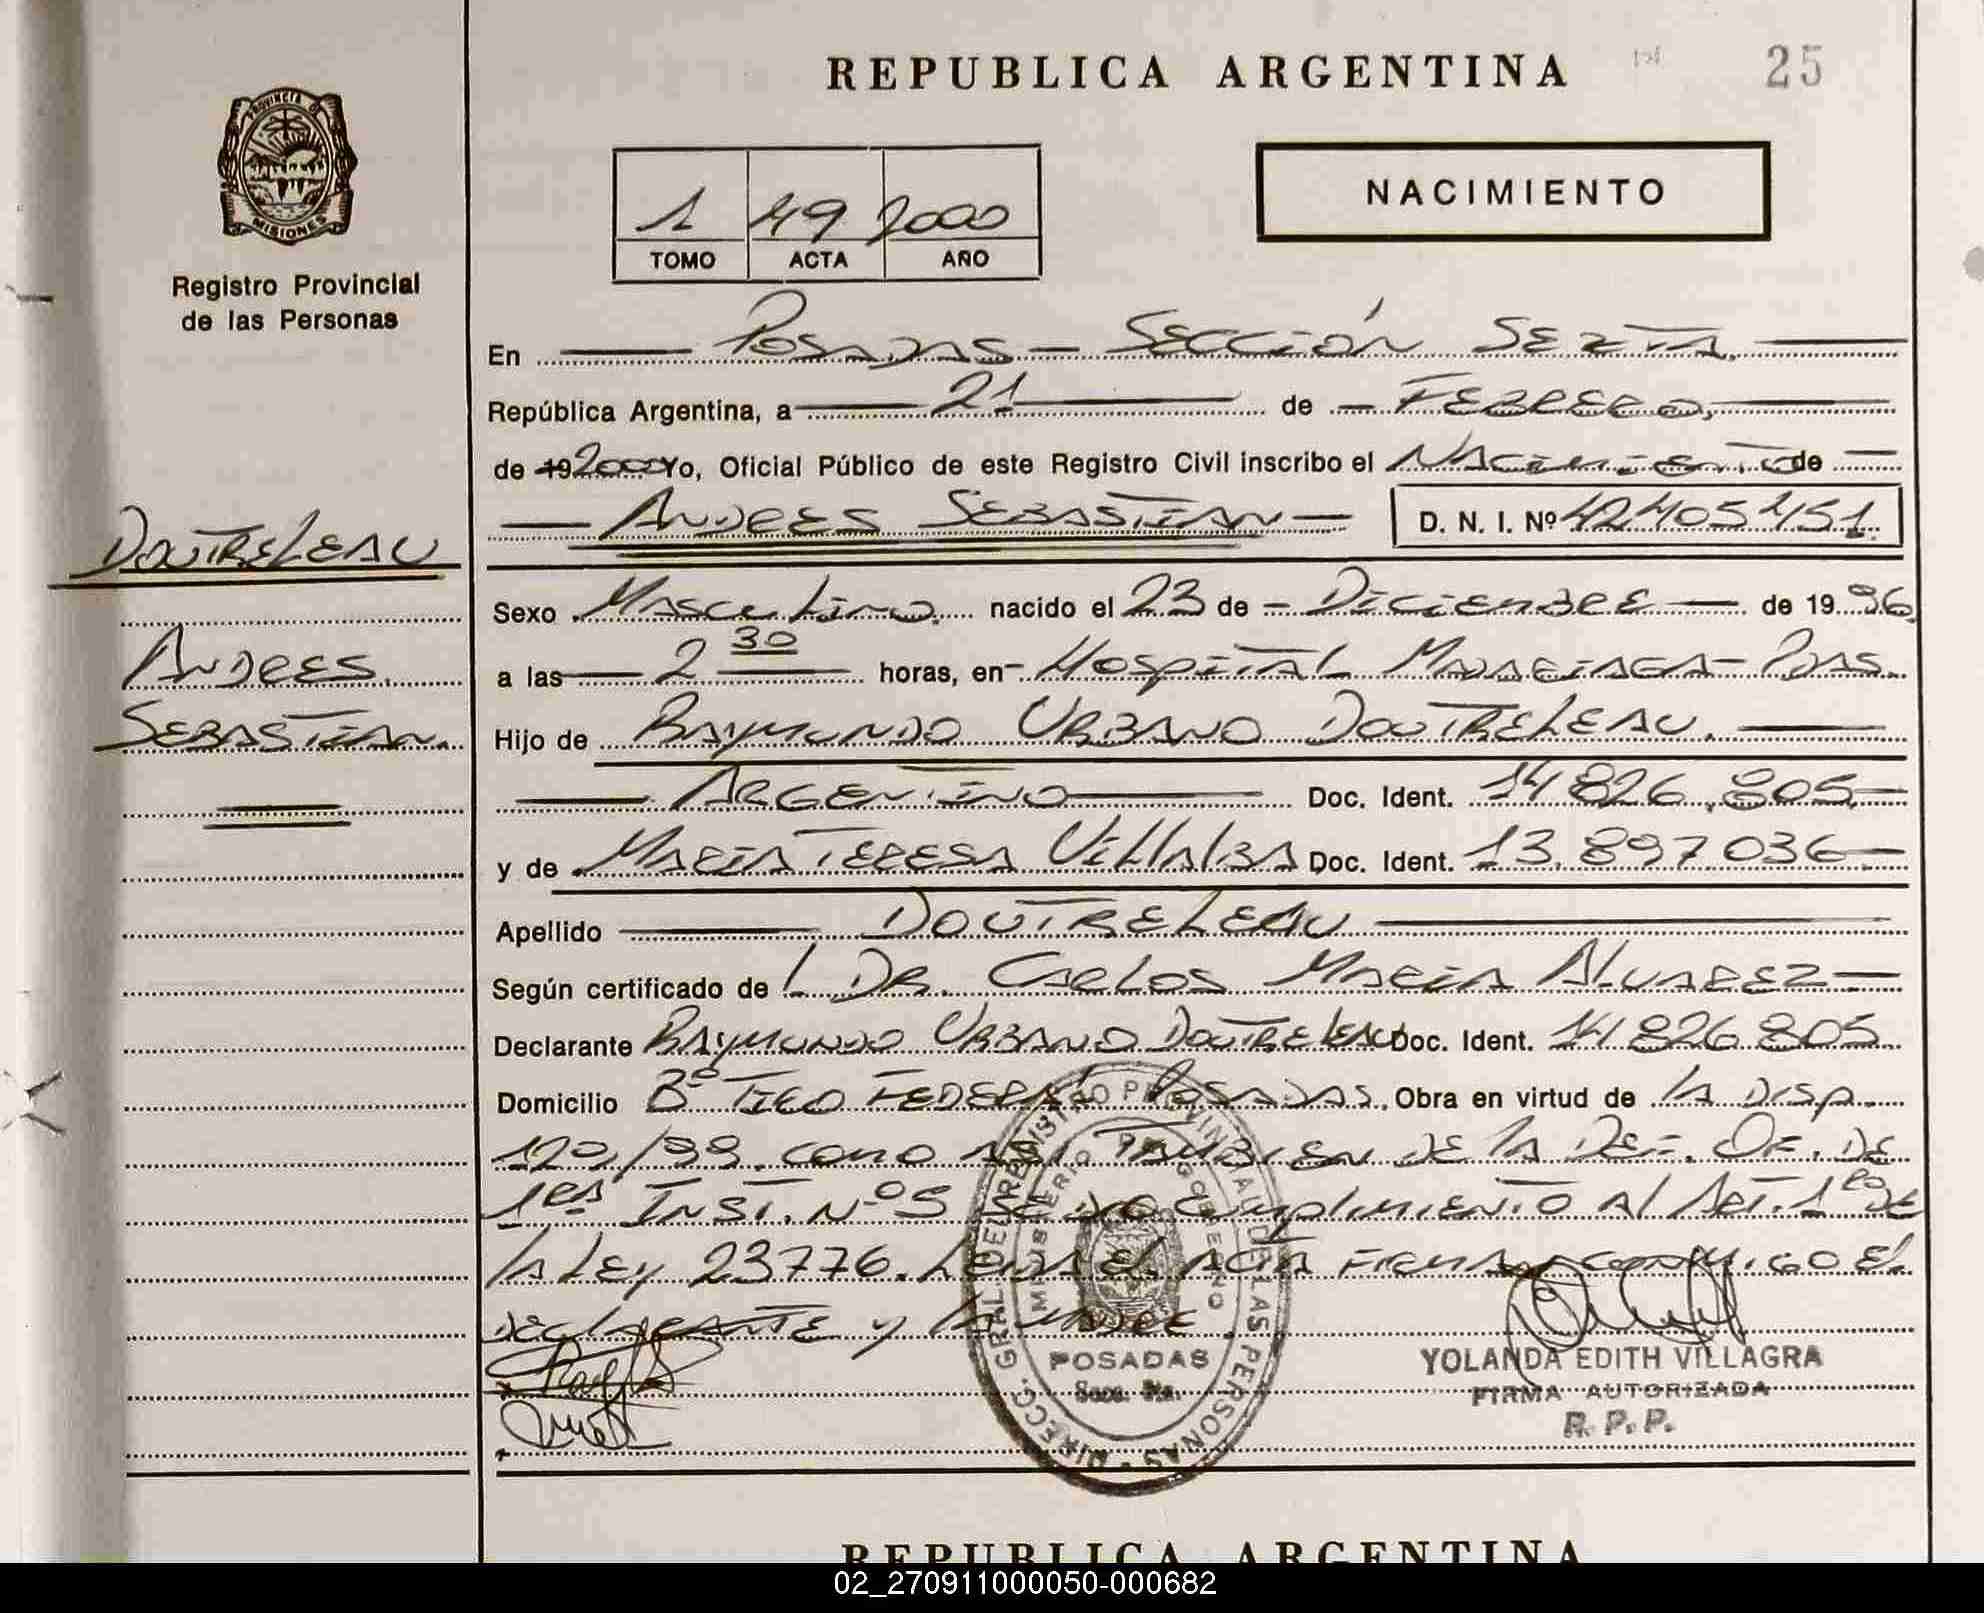 REPUBLICA ARGENTINA
25
PROVINCIA DE
MISIONES
Registro Provincial
de las Personas
1 49 2000
TOMO ACTA AÑO
NACIMIENTO
En POSADAS - SECCIÓN SEXTA.
República Argentina, a 21 de FEBRERO,
de 19 2000 Yo, Oficial Público de este Registro Civil inscribo el NACIMIENTO de
ANDRES SEBASTIAN D. N. I. Nº 42405451
DOUTRELEAU
ANDRES
SEBASTIAN.
Sexo MASCULINO. nacido el 23 de - DICIEMBRE - de 19 96
a las 2 30 horas, en - HOSPITAL MADARIAGA - PDAS.
Hijo de RAYMUNDO URBANO DOUTRELEAU.
ARGENTINO Doc. Ident. 14 826.805
y de MARIA TERESA VILLALBA Doc. Ident. 13.897036
Apellido DOUTRELEAU
Según certificado de L DR. CARLOS MARIA ALVAREZ
Declarante RAYMUNDO URBANO DOUTRELEAU Doc. Ident. 14 826 805
Domicilio Bº TIRO FEDERAL POSADAS. Obra en virtud de LA DISP.
120/99. COMO ASI TAMBIEN DE LA DEF. OF. DE
1ra INST. Nº 5 SE DIO CUMPLIMIENTO AL ART. 1ro DE
LA LEY 23776. LEIDA EL ACTA FIRMAN CONMIGO EL
DECLARANTE Y LA MADRE
DIRECC. GRAL DEL REGISTRO PROVINCIAL DE LAS PERSONAS
MINISTERIO DE GOBIERNO
POSADAS
YOLANDA EDITH VILLAGRA
FIRMA AUTORIZADA
R. P. P.
REPUBLICA ARGENTINA
02_270911000050-000682